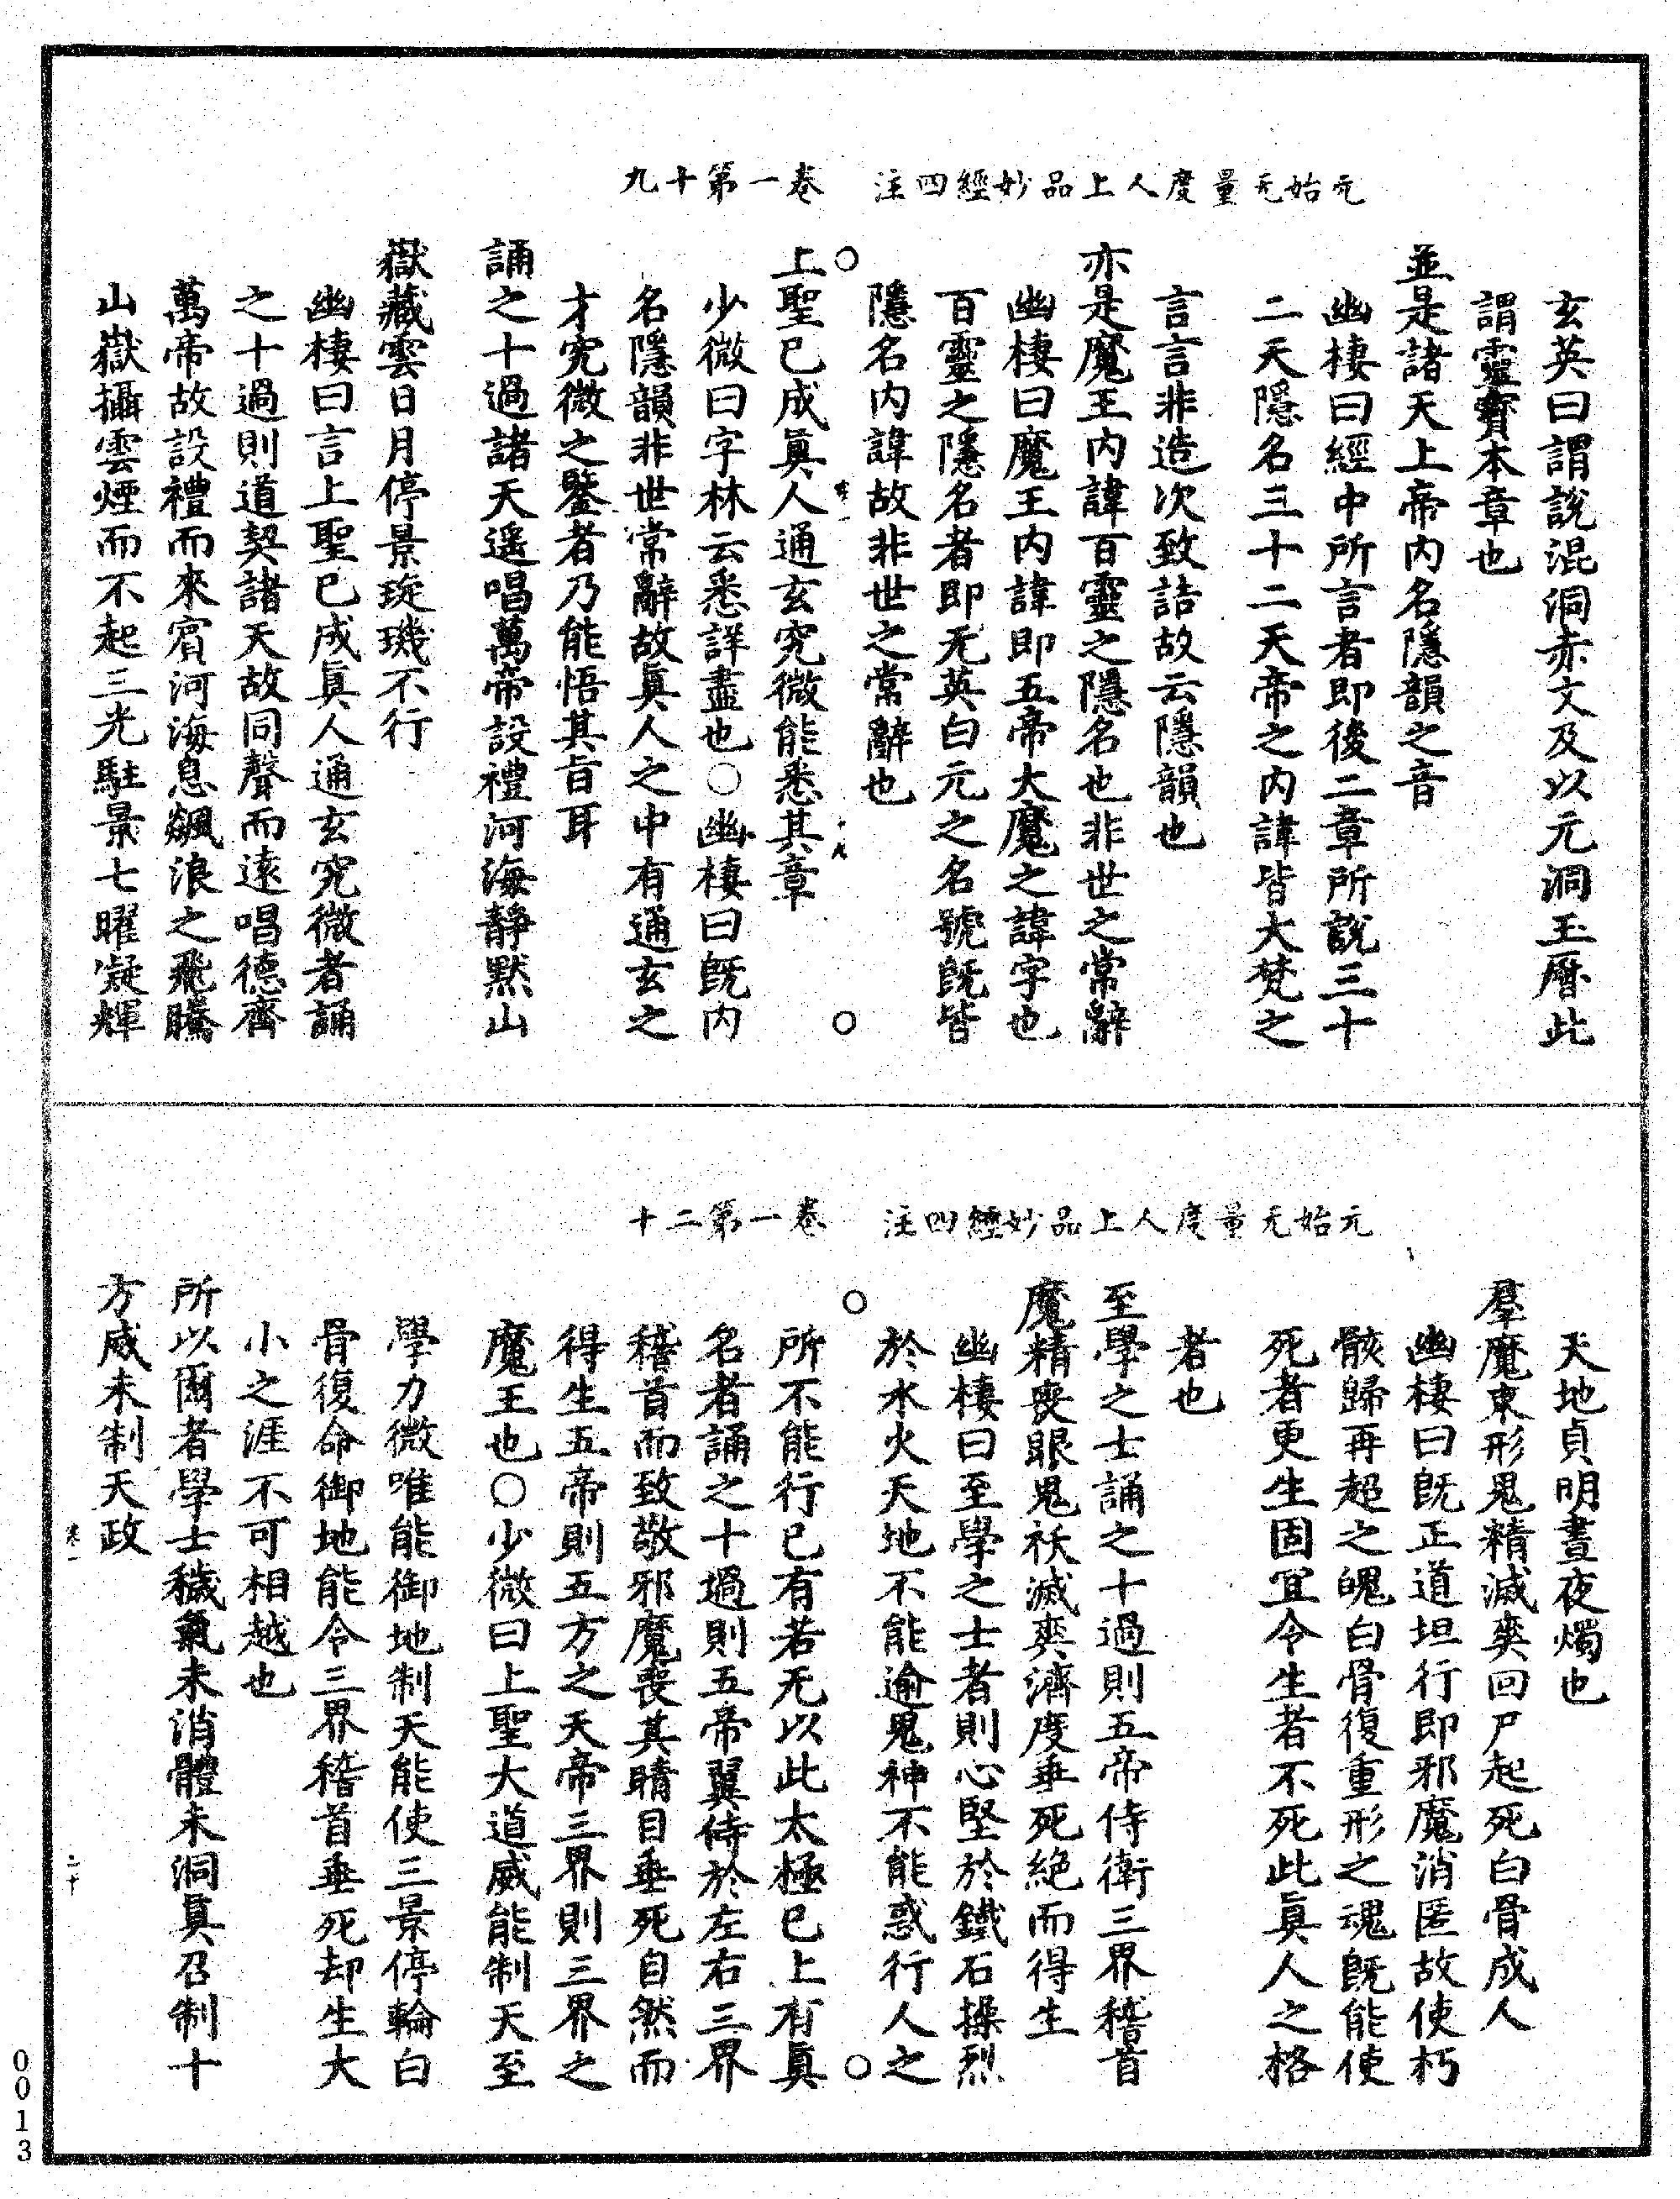 元始无量度人上品妙經四注　卷一第十九
玄英曰謂說混洞赤文及以元洞玉曆此
謂靈寶本章也
並是諸天上帝內名隱韻之音
幽棲曰經中所言者即後二章所說三十
二天隱名三十二天帝之內諱皆大梵之
言言非造次致詰故云隱韻也
亦是魔王內諱百靈之隱名也非世之常辭
幽棲曰魔王內諱即五帝大魔之諱字也
百靈之隱名者即无英白元之名號既皆
隱名內諱故非世之常辭也
○　卷一　十九　○
上聖已成真人通玄究微能悉其章
少微曰字林云悉詳盡也○幽棲曰既內
名隱韻非世常辭故真人之中有通玄之
才究微之鑒者乃能悟其旨耳
誦之十過諸天遥唱萬帝設禮河海静默山
嶽藏雲日月停景琁璣不行
幽棲曰言上聖已成真人通玄究微者誦
之十過則道契諸天故同聲而遠唱德齊
萬帝故設禮而來賓河海息飆浪之飛騰
山嶽攝雲煙而不起三光駐景七曜凝輝
元始无量度人上品妙經四注　卷一第二十
天地貞明晝夜燭也
羣魔束形鬼精滅爽回尸起死白骨成人
幽棲曰既正道坦行即邪魔消匿故使朽
骸歸再超之魄白骨復重形之魂既能使
死者更生固冝令生者不死此真人之格
者也
至學之士誦之十過則五帝侍衛三界稽首
魔精喪眼鬼祅滅爽濟度垂死絕而得生
幽棲曰至學之士者則心堅於鐵石操烈
於水火天地不能逾鬼神不能惑行人之
○　○
所不能行已有若无以此太極已上有真
名者誦之十過則五帝翼侍於左右三界
稽首而致敬邪魔喪其睛目垂死自然而
得生五帝則五方之天帝三界則三界之
魔王也○少微曰上聖大道威能制天至
學力微唯能御地制天能使三景停輪白
骨復命御地能令三界稽首垂死却生大
小之涯不可相越也
所以爾者學士穢氣未消體未洞真召制十
方威未制天政
卷一　二十
0013